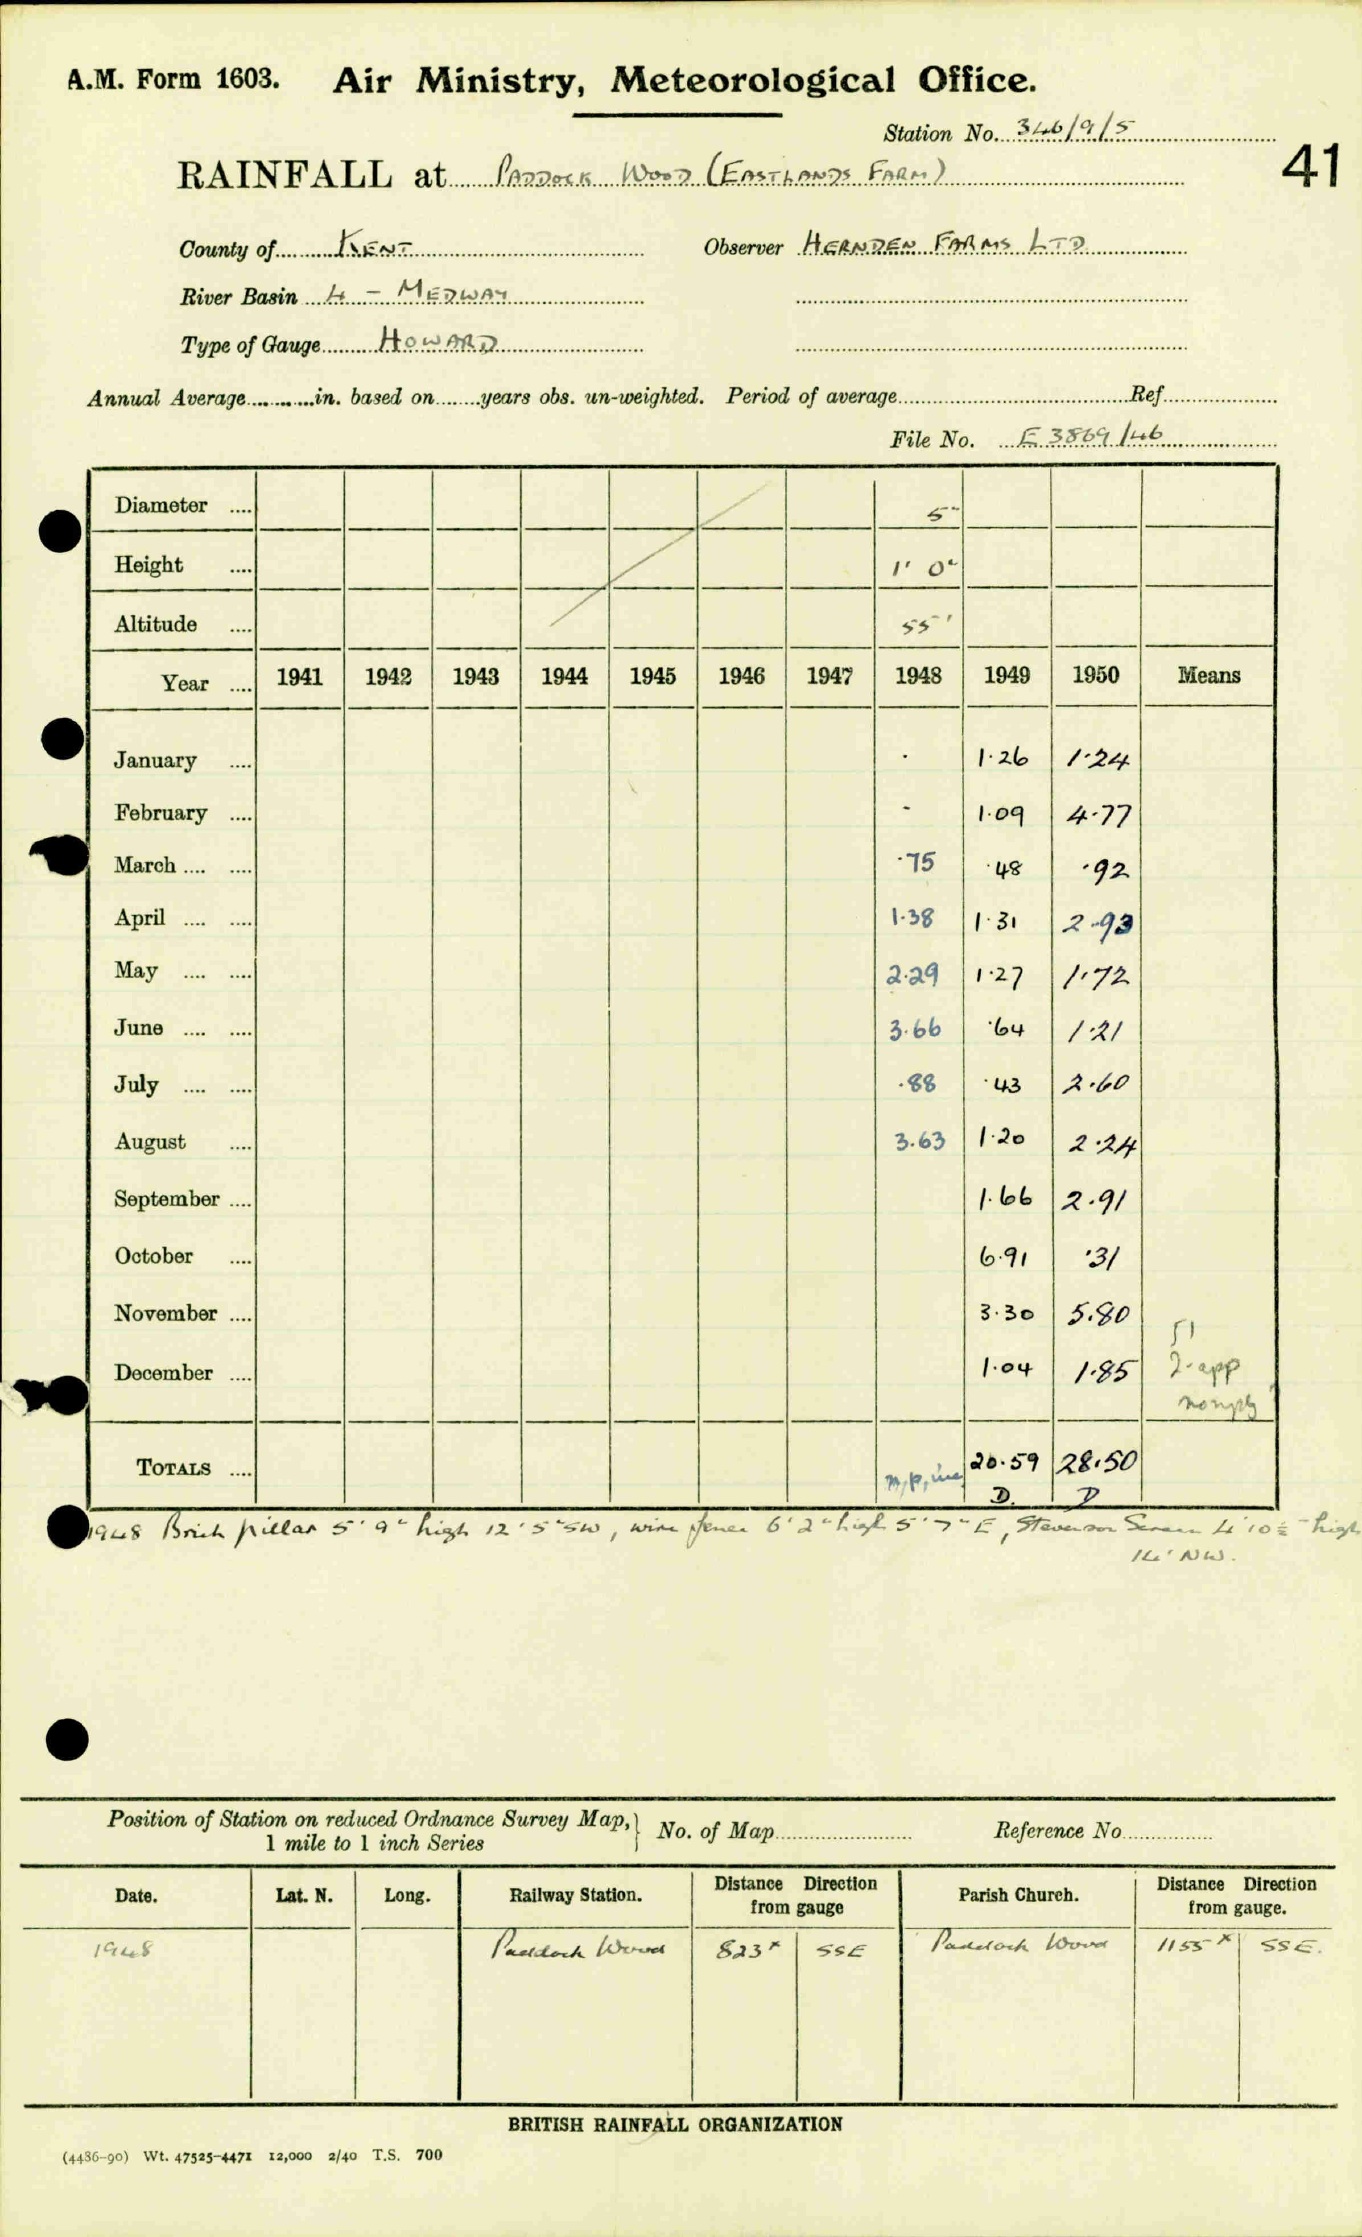 A.M. Form 1603. Air Ministry, Meteorological Office.
Station No. 346/9/5
41
RAINFALL at PADDOCK WOOD (EASTLANDS FARM)
County of KENT Observer HERNDEN FARMS LTD
River Basin 4 - MEDWAY
Type of Gauge HOWARD
Annual Average in. based on years obs. un-weighted. Period of average Ref.
File No. E 3869/46
Diameter 5"
Height 1' 0"
Altitude 55'
Year 1941 1942 1943 1944 1945 1946 1947 1948 1949 1950 Means
January · 1·26 1·24
February - 1·09 4·77
March ·75 ·48 ·92
April 1·38 1·31 2·93
May 2·29 1·27 1·72
June 3·66 ·64 1·21
July ·88 ·43 2·60
August 3·63 1·20 2·24
September 1·66 2·91
October 6·91 ·31
November 3·30 5·80
51
December 1·04 1·85 2-app
TOTALS 20·59 28·50
D. D
1948 Brick pillar 5' 9" high 12' 5" SW, wire fence 6' 2" high 5' 7" E, Stevenson Screen 4' 10½" high
14' NW.
Position of Station on reduced Ordnance Survey Map,} No. of Map Reference No.
1 mile to 1 inch Series
Date. Lat. N. Long. Railway Station. Distance Direction from gauge Parish Church. Distance Direction from gauge.
1948 Paddock Wood 823ˣ SSE Paddock Wood 1155ˣ SSE.
BRITISH RAINFALL ORGANIZATION
(4486-90) Wt. 47525-4471 12,000 2/40 T.S. 700